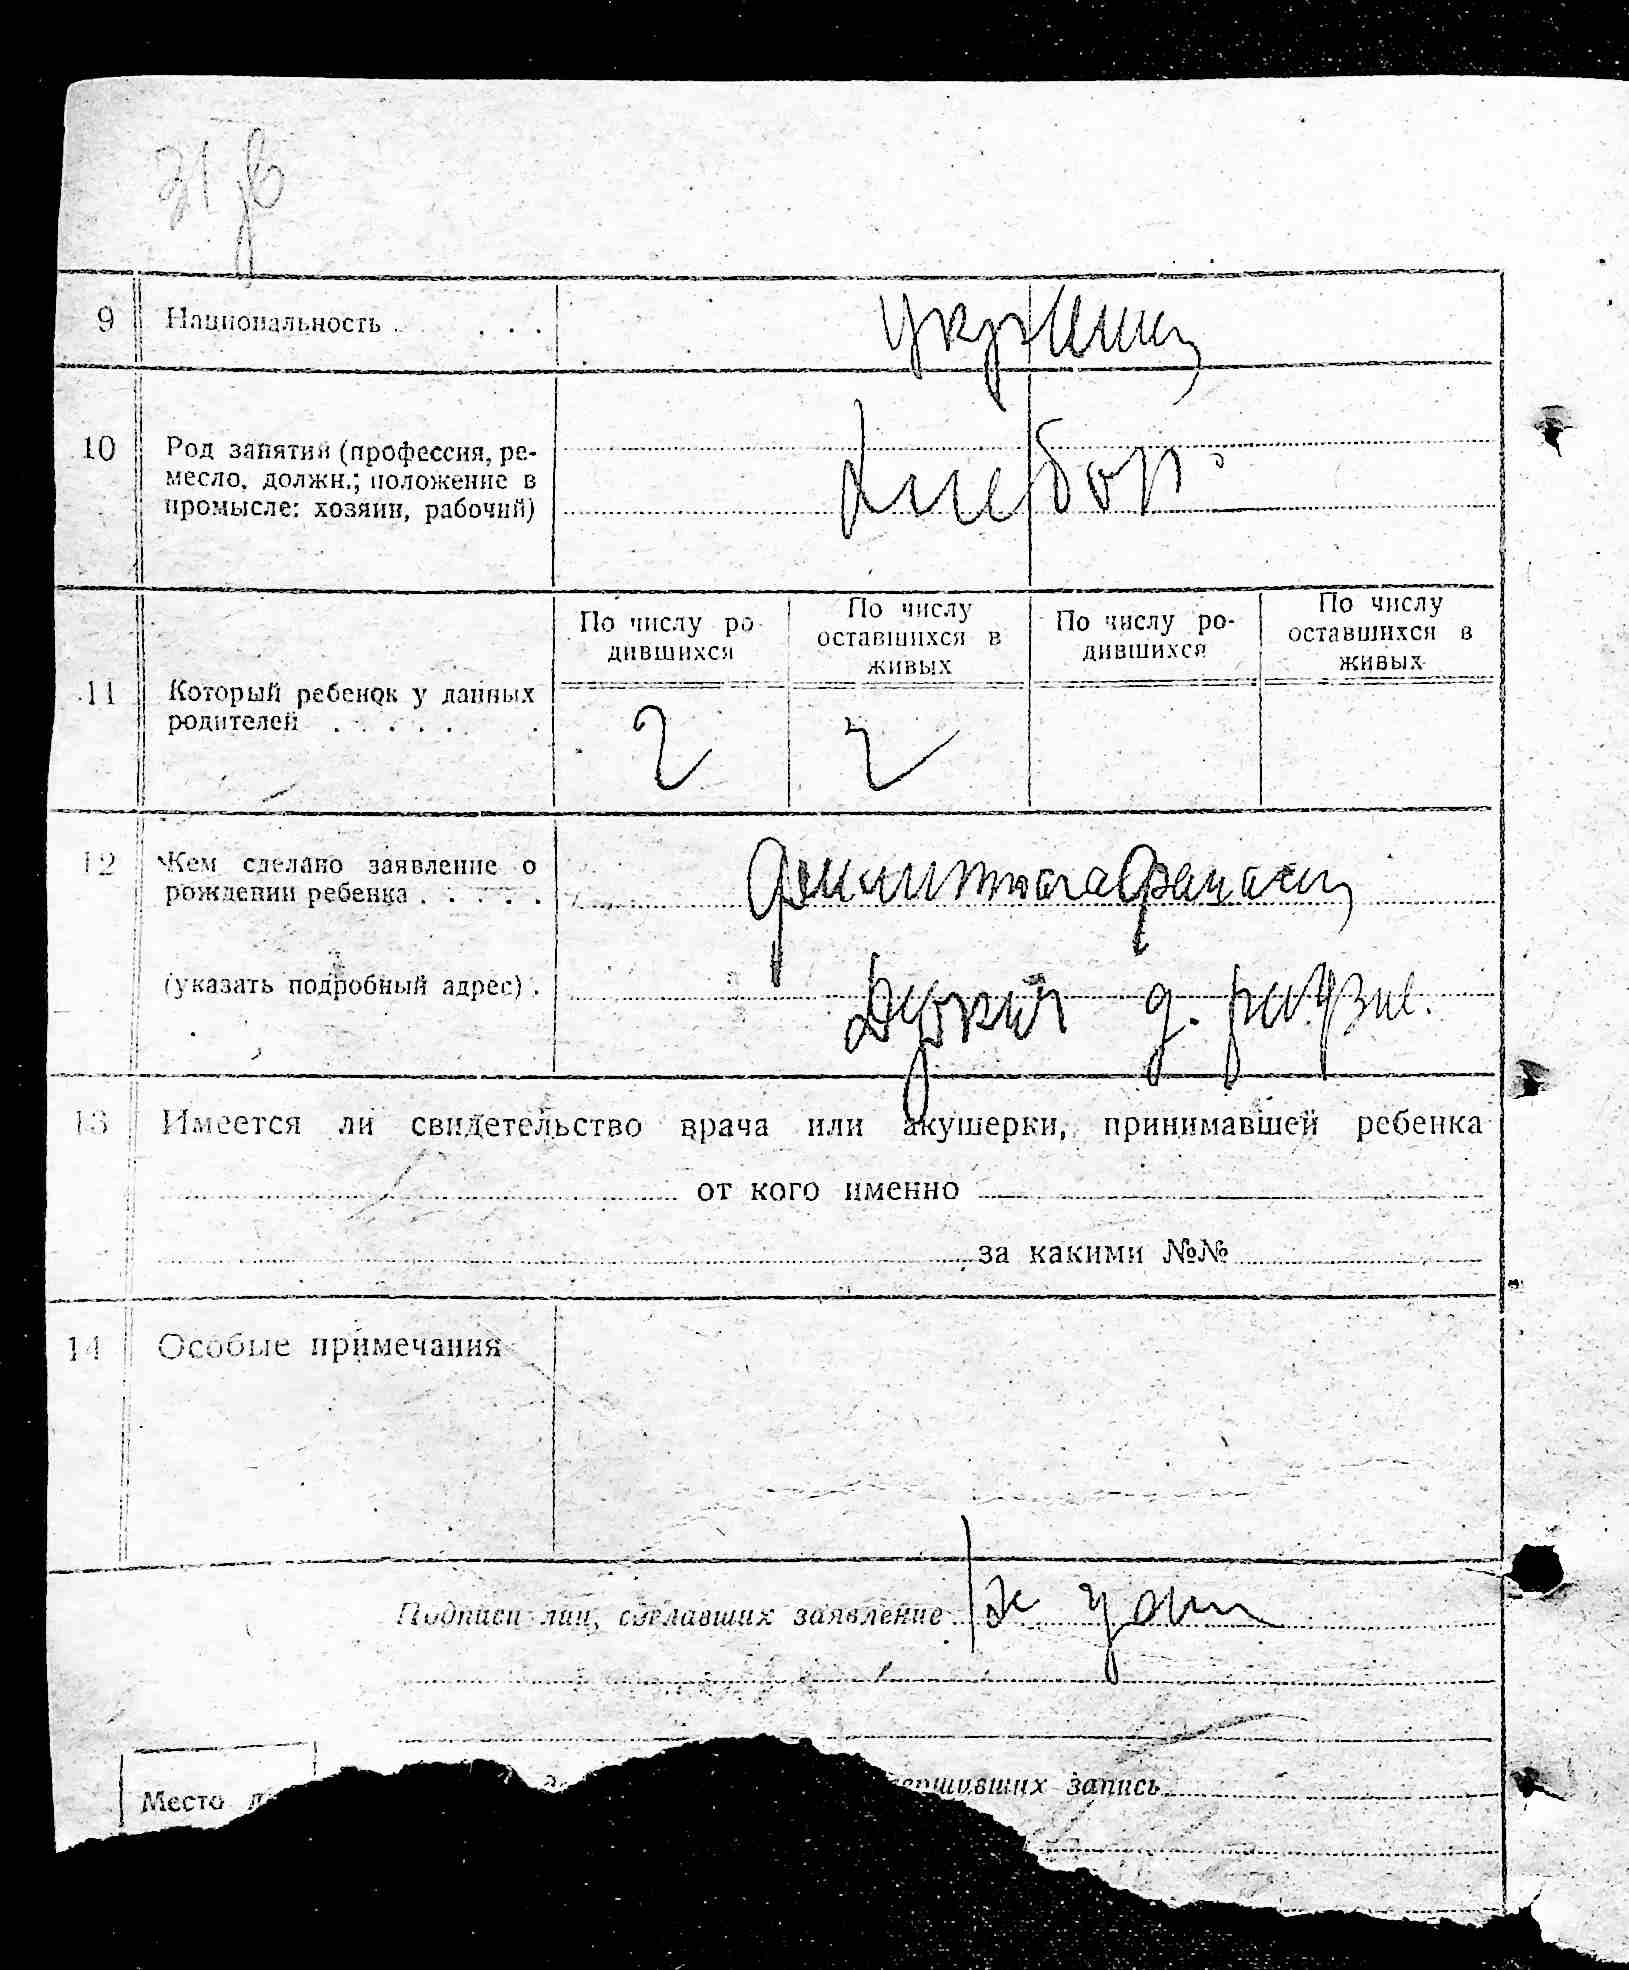 31
9 Национальность . . . . укр
10 Род занятий (профессия, ре-
месло, должн.; положение в
промысле: хозяин, рабочий)
хлебор
По числу ро-
дившихся
По числу
оставшихся в
живых
По числу ро-
дившихся
По числу
оставшихся в
живых
11 Который ребенок у данных
родителей . . . . . .
2 2
12 Кем сделано заявление о
рождении ребенка . . . . .
(указать подробный адрес) .
13 Имеется ли свидетельство врача или акушерки, принимавшей ребенка
от кого именно
за какими №№
14 Особые примечания
Подписи лиц, сделавших заявление
Место
вершивших запись